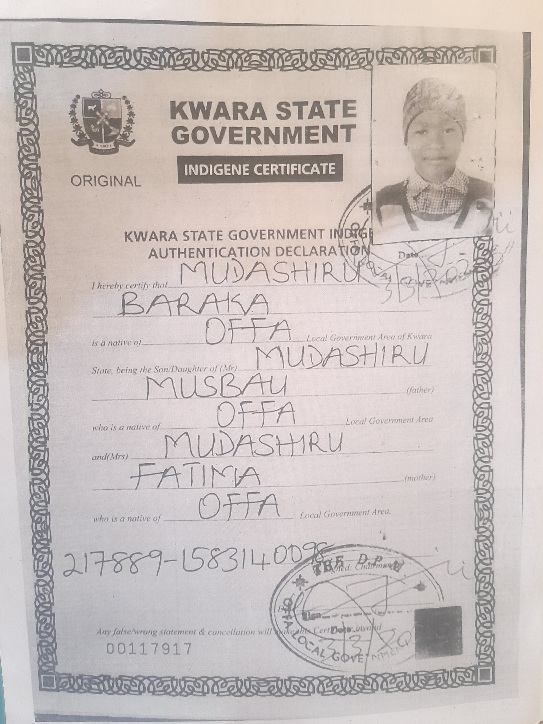 KWARA STATE
GOVERNMENT
INDIGENE CERTIFICATE
ORIGINAL
KWARA STATE GOVERNMENT INDIGE
AUTHENTICATION DECLARATION
Date
I hereby certify that MUDASHIRU
BARAKA
is a native of OFFA Local Government Area of Kwara
State, being the Son/Daughter of (Mr) MUDASHIRU
MUSBAU (father)
who is a native of OFFA Local Government Area
and(Mrs) MUDASHIRU
FATIMA (mother)
who is a native of OFFA Local Government Area.
217889-1583140098
Any false/wrong statement & cancellation will make this Certificate invalid
00117917
OFFA LOCAL GOVERNMENT
Date